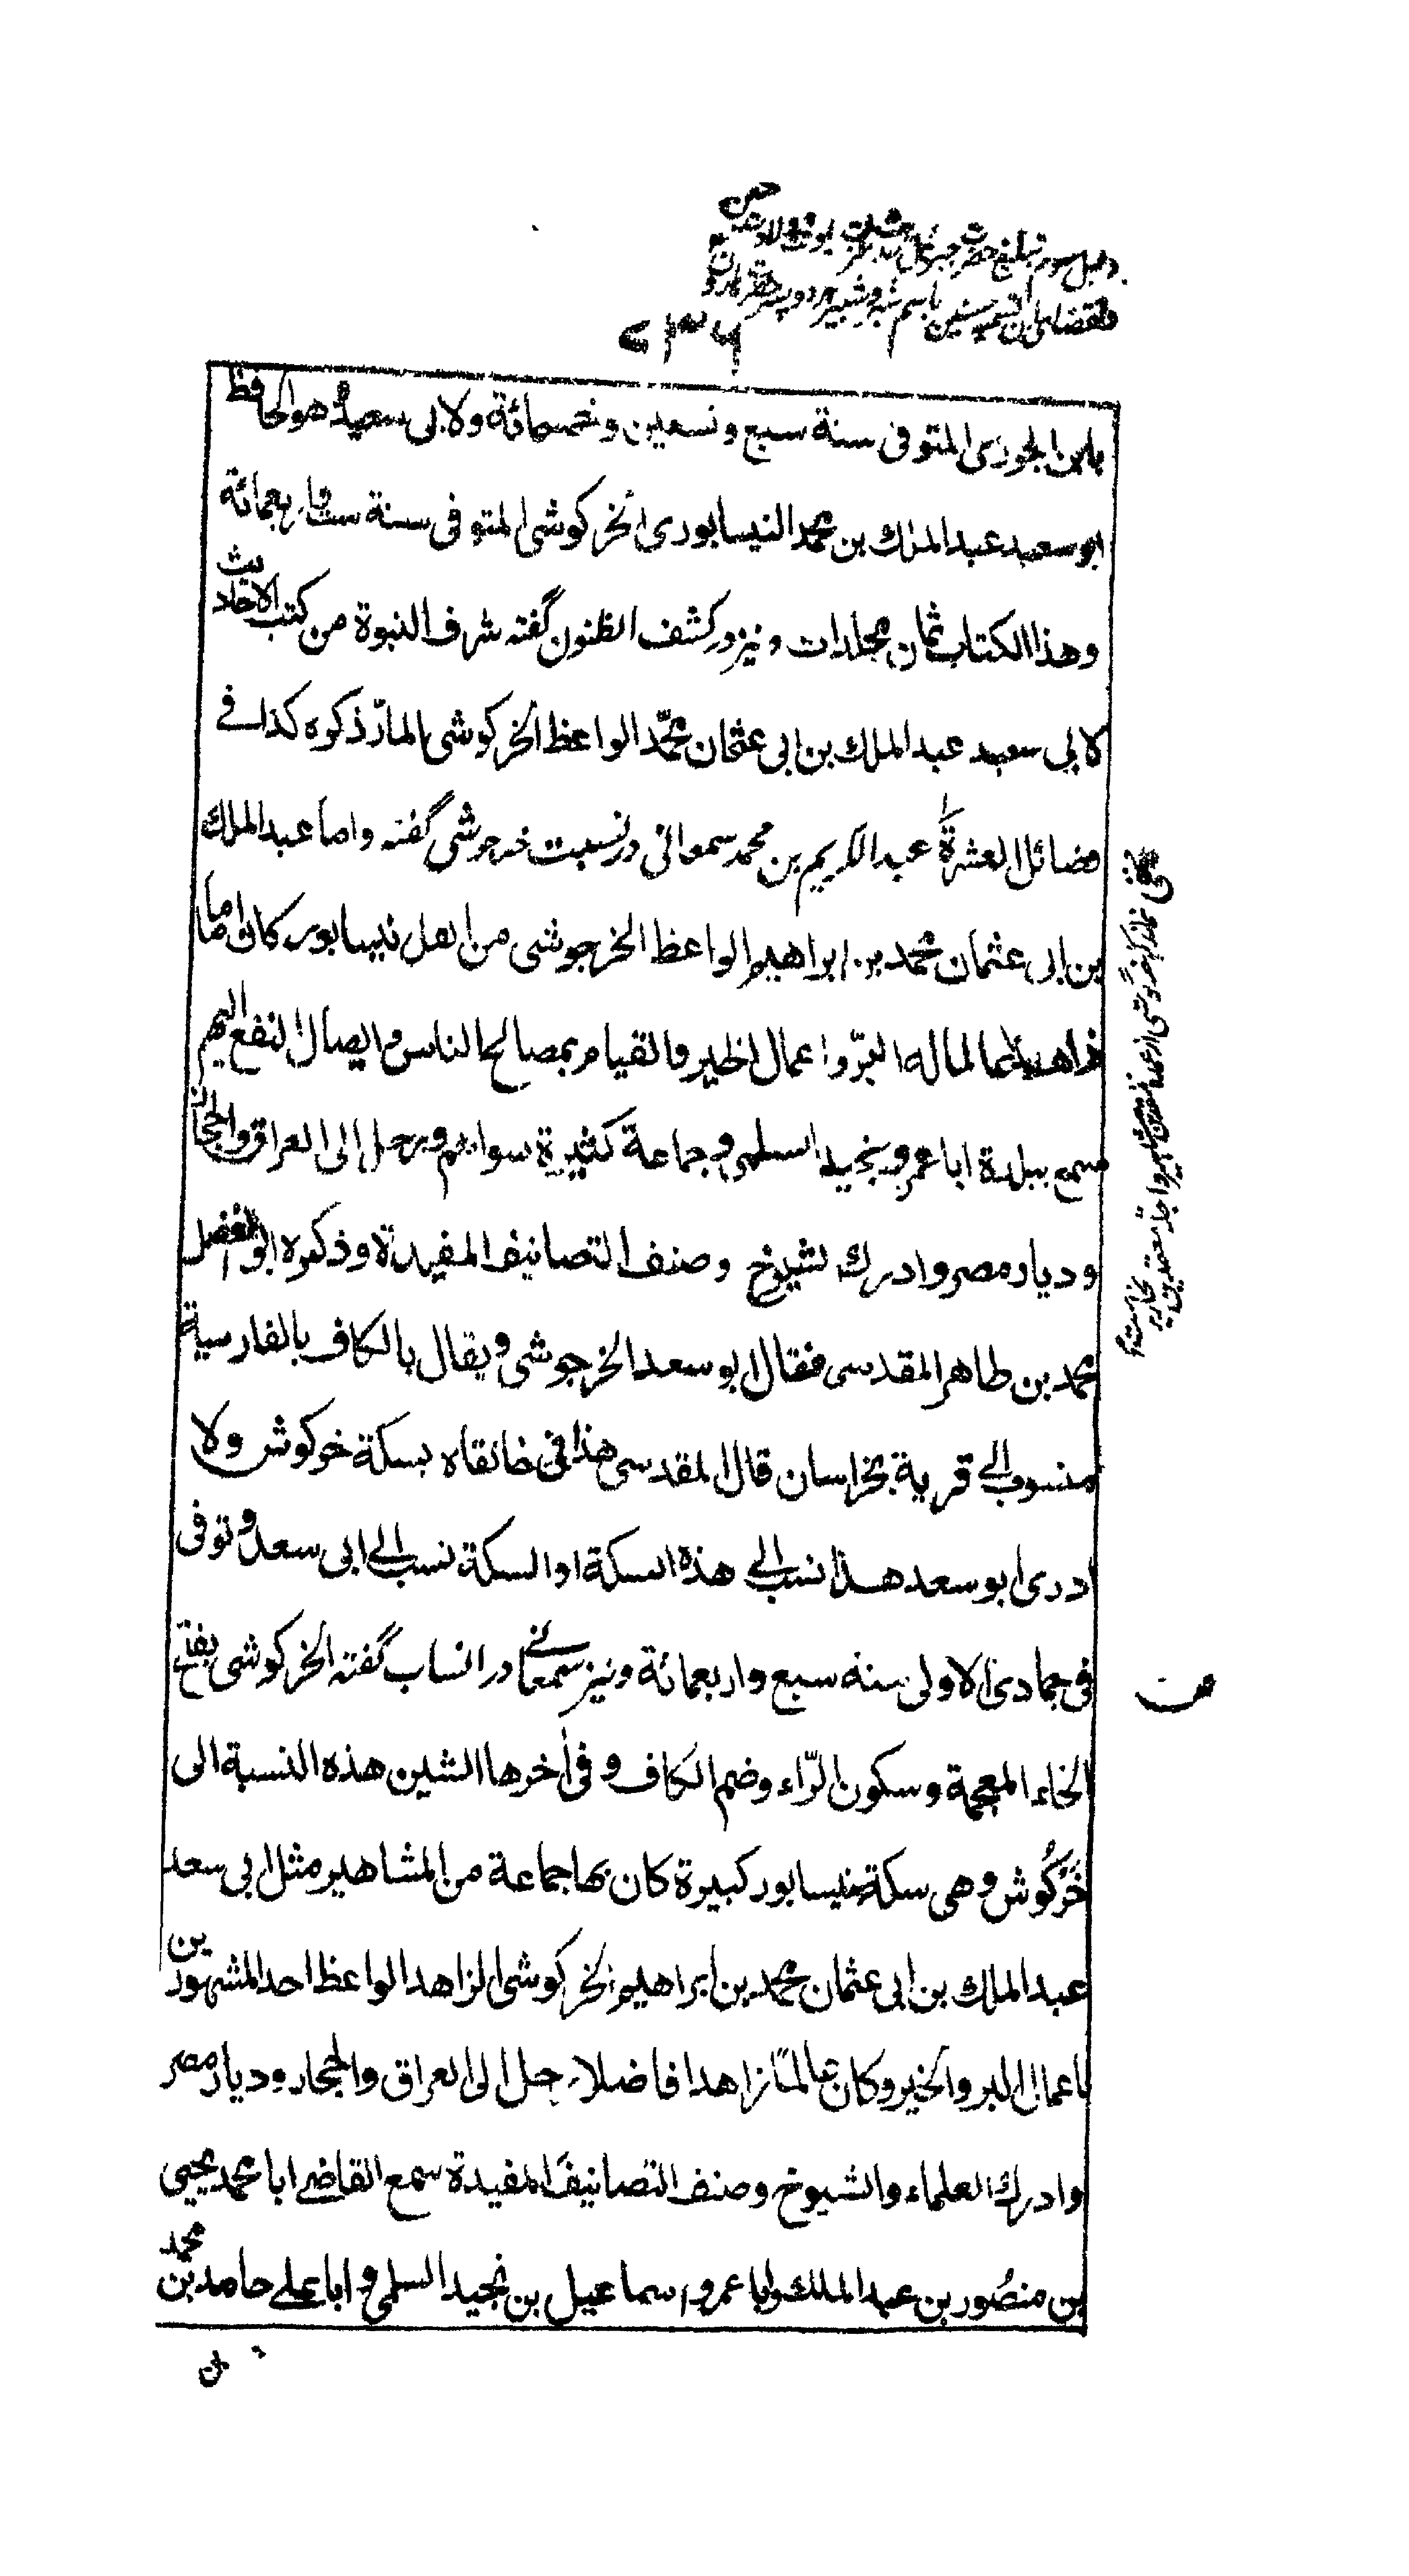 دلیل سوم تبلیغ حضرت جبرئیل
باسم شبر و شبیر هر دو پسر حضرت هارون
بابن الجوزی المتوفی سنة سبع و تسعین و خمسمائة ولابی سعید هو الحافظ
ابو سعید عبد الملك بن محمد النیسابوری الخرکوشی المتوفی سنة ست و اربعمائة
وهذا الکتاب ثمان مجلدات و نیز در کشف الظنون گفته شرف النبوة من کتب الاحادیث
لابی سعید عبد الملك بن ابی عثمان محمّد الواعظ الخرکوشی المارّ ذکره کذا فے
فضائل العشرة عبد الکریم بن محمد سمعانی در نسبت خرجوشی گفته واما عبد الملك
بن ابی عثمان محمد بن ابراهیم الواعظ الخرجوشی من اهل نیسابور کان اماما
زاهدا عالما له البرّ واعمال الخیر والقیام بمصالح الناس و ایصال النفع الیهم
سمع ببلدة ابا عمرو بن نجید السلمی و جماعة کثیرة سواهم و رحل الی العراق والحجاز
و دیار مصر وادرك الشیوخ وصنف التصانیف المفیدة وذکره ابو الفضل
محمد بن طاهر المقدسی فقال ابو سعد الخرجوشی ویقال بالکاف بالفارسیة
منسوب الے قریة بخراسان قال المقدسی هذا فی خانقاه بسکة خرکوش ولا
ادری ابو سعد هذا نسب الے هذه السکة او السکة نسب الے ابی سعد وتوفی
فی جمادی الاولی سنه سبع واربعمائة و نیز سمعانے در انساب گفته الخرکوشی بفتح
الخاء المعجمة و سکون الرّاء وضم الکاف و فی اخرها الشین هذه النسبة الی
خَرْکُوش وهی سکة بنیسابور کبیرة کان بها جماعة من المشاهیر مثل ابی سعد
عبد الملك بن ابی عثمان محمد بن ابراهیم الخرکوشی الزاهد الواعظ احد المشهورین
باعمال البر والخیر وکان عالمًا زاهدا فاضلا رحل الی العراق والحجاز و دیار مصر
وادرك العلماء والشیوخ وصنف التصانیف المفیدة سمع القاضے ابا محمد یحیی
بن منصُور بن عبد الملك وابا عمرو اسماعیل بن نجید السلمی و ابا علے حامد بن محمد
مخفی نماند که خرگوشی از